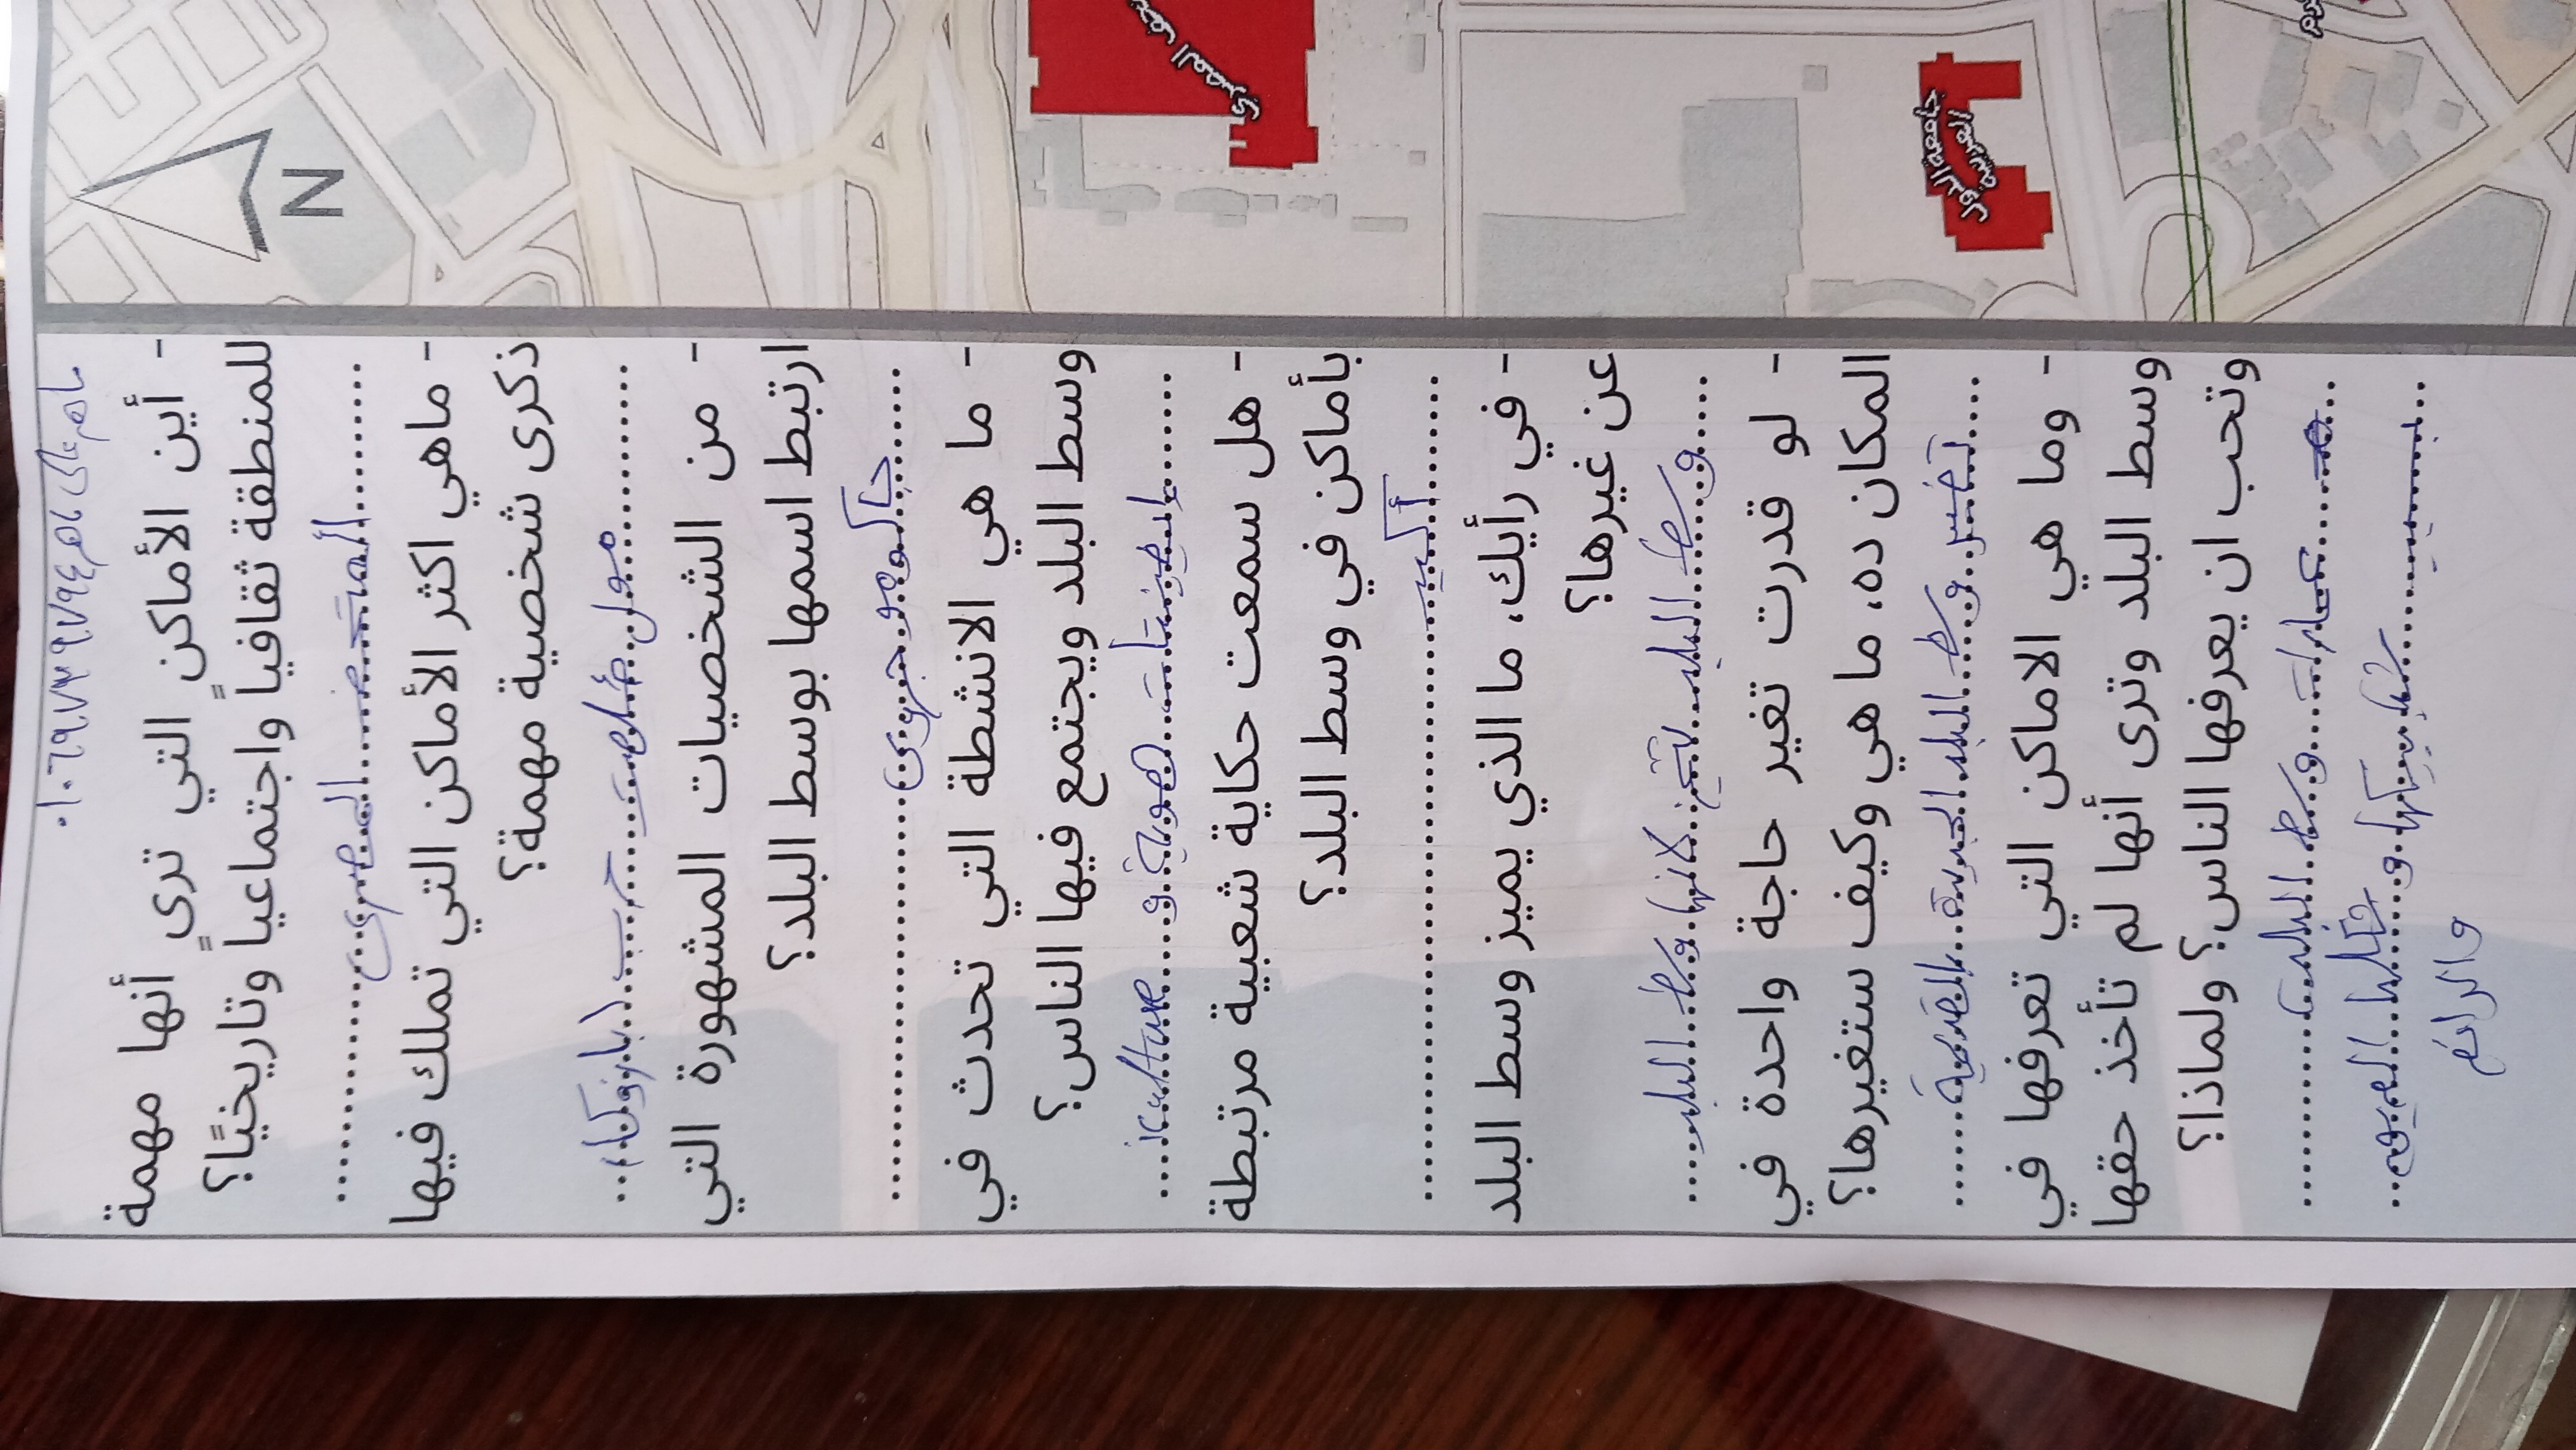 ماهر على ماهر ٠١٠٦٩٧٣٩٦٧٩٤
- أين الأماكن التي ترى أنها مهمة
للمنطقة ثقافياً واجتماعياً وتاريخيًا؟
المتحف المصرى
- ماهي اكثر الأماكن التي تملك فيها
ذكرى شخصية مهمة؟
مول طلعت حرب (بازوكا)
- من الشخصيات المشهورة التي
ارتبط اسمها بوسط البلد؟
جاكومو جروبى
- ما هي الانشطة التي تحدث في
وسط البلد ويجتمع فيها الناس؟
المهرجانات
- هل سمعت حكاية شعبية مرتبطة
بأماكن في وسط البلد؟
أكيد
- في رأيك، ما الذي يميز وسط البلد
عن غيرها؟
وسط البلد لانها وسط البلد
- لو قدرت تغير حاجة واحدة في
المكان ده، ما هي وكيف ستغيرها؟
وسط البلد
- وما هي الاماكن التي تعرفها في
وسط البلد وترى أنها لم تأخذ حقها
وتحب ان يعرفها الناس؟ ولماذا؟
عمارات وسط البلد
شكلها العريق
والرائع
N
المصري
جامعة الدول
العربية